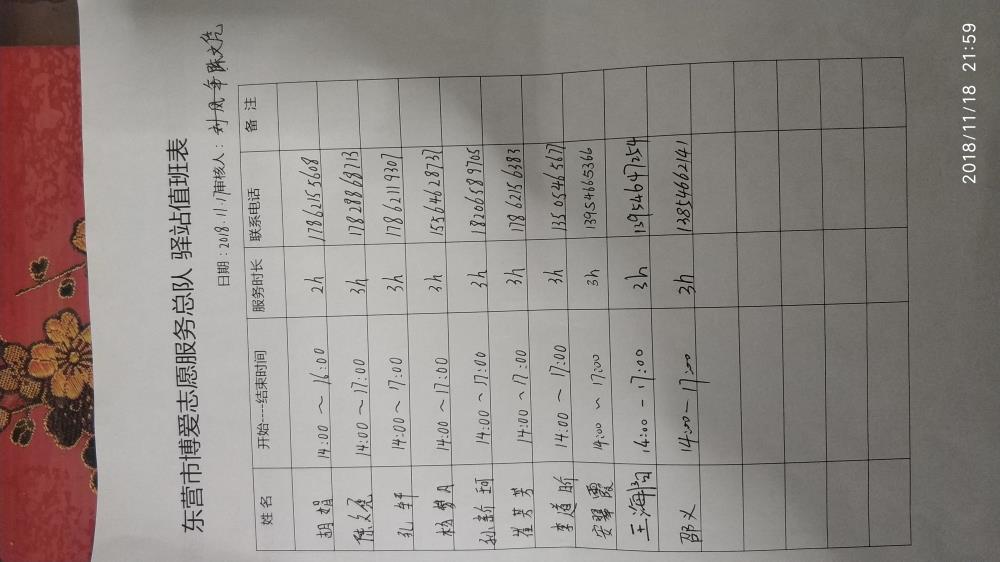 东营市博爱志愿服务总队 驿站值班表
日期：2018.11.17审核人：刘凤华 陈文凭
姓名 开始----结束时间 服务时长 联系电话 备注
胡娟 14:00～16:00 2h 17862155608
14:00～17:00 3h 17828868713
孔轩 14:00～17:00 3h 17862119307
杨梦月 14:00～17:00 3h 15564628737
孙新珂 14:00～17:00 3h 18206589705
崔芳芳 14:00～17:00 3h 17862156383
李道昕 14:00～17:00 3h 13505465671
安翠霞 14:00～17:00 3h 13954665366
王海 14:00-17:00 3h 13954647254
邵义 14:00-17:00 3h 13854662141
2018/11/18 21:59